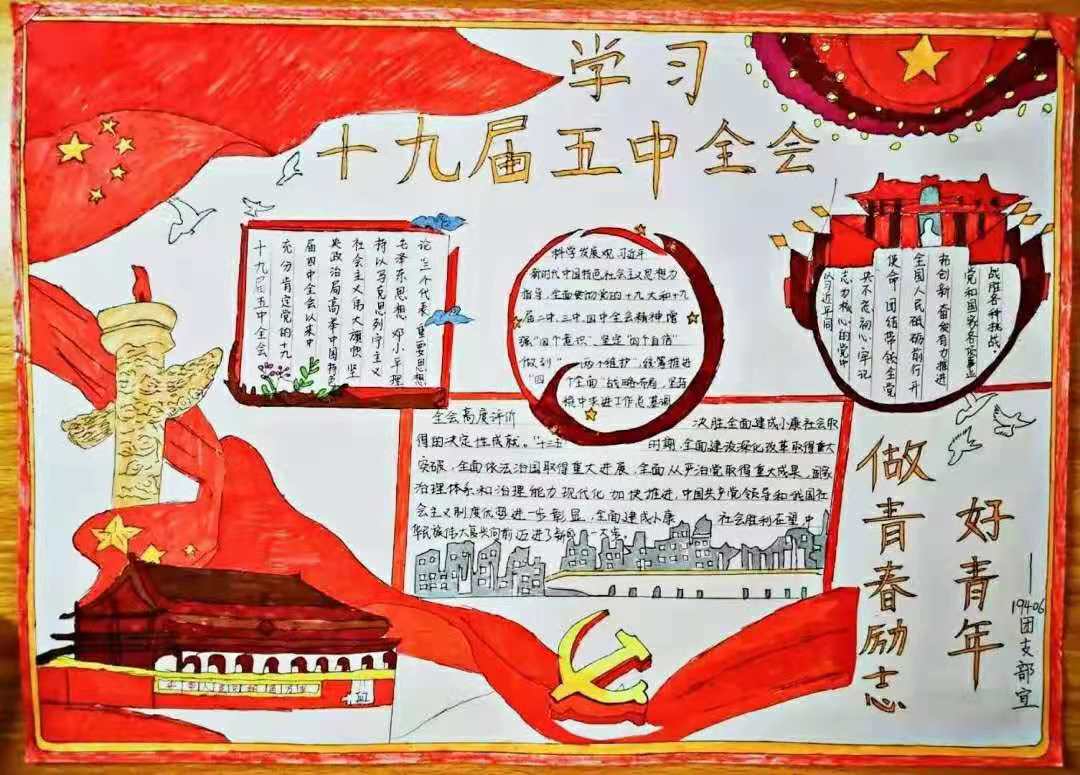 学习
十九届五中全会
十九届五中全会
充分肯定党的十九
届四中全会以来中
央政治局高举中国特色
社会主义伟大旗帜,坚
持以马克思列宁主义
毛泽东思想 邓小平理
论三个代表"重要思想
科学发展观 习近平
新时代中国特色社会主义思想为
指导,全面贯彻党的十九大和十九
届二中,三中,四中全会精神,增
强"四个意识",坚定"四个自信"
做到"两个维护",统筹推进
"四个全面"战略布局,坚持
稳中求进工作总基调
以习近平同
志为核心的党中
央不忘初心,牢记
使命,团结带领全党
全国人民砥砺前行开
拓创新奋发有为推进
党和国家各项事业
战胜各种挑战.
全会高度评价 决胜全面建成小康社会取
得的决定性成就。"十三五 时期,全面建深化改革取得重大
突破,全面依法治国取得重大进展,全面从严治党取得重大成果,国家
治理体系和治理能力现代化加快推进,中国共产党领导和我国社
会主义制度优势进一步彰显,全面建成小康 社会胜利在望,中
华民族伟大复兴向前迈进了新的一大步。
做青春励志
好青年
——19406团支部宣